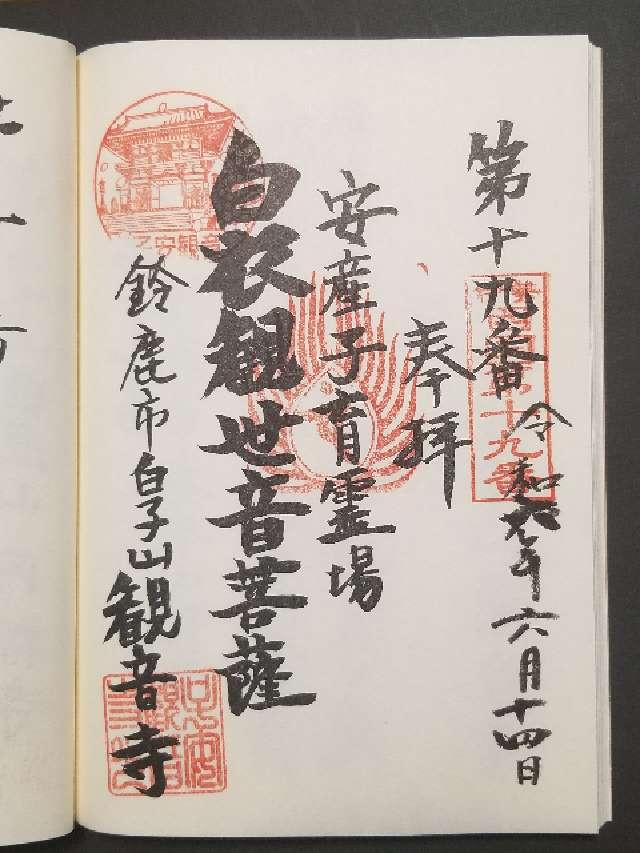 第十九番
令和元年六月十四日
奉拝
安産子育霊場
白衣観世音菩薩
鈴鹿市白子山観音寺
子安観音